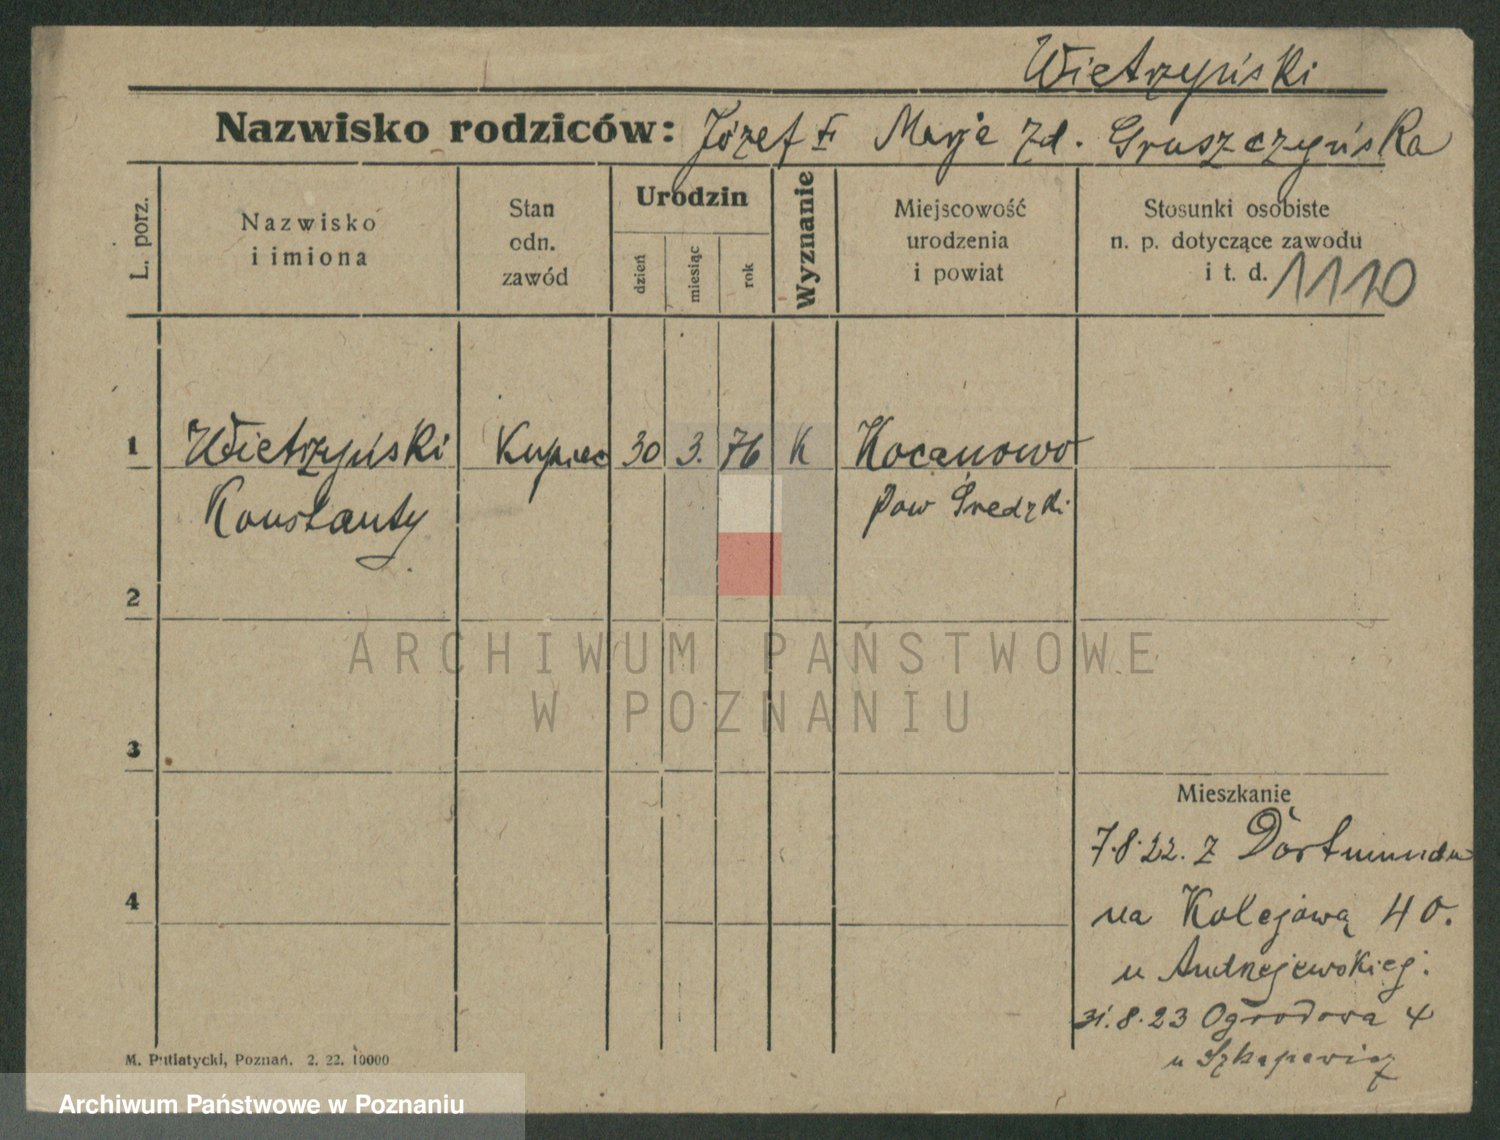 Wietrzyński
Nazwisko rodziców: Józef i Marje zd. Gruszczyńska
L. porz.
Nazwisko
i imiona
Stan
odn.
zawód
Urodzin
dzień
miesiąc
rok
Wyznanie
Miejscowość
urodzenia
i powiat
Stosunki osobiste
n. p. dotyczące zawodu
i t. d. 1110
1 Wietrzyński Kupiec 30 3. 76 K Kocanowo
Konstanty pow Średzki
2
ARCHIWUM PAŃSTWOWE
W POZNANIU
3
Mieszkanie
7.8.22. z Dortmundu
4
na Kolejową 40.
u Andrzejewskiej.
31.8.23 Ogrodowa 4
u
M. Putiatycki, Poznań. 2. 22. 10000
Archiwum Państwowe w Poznaniu